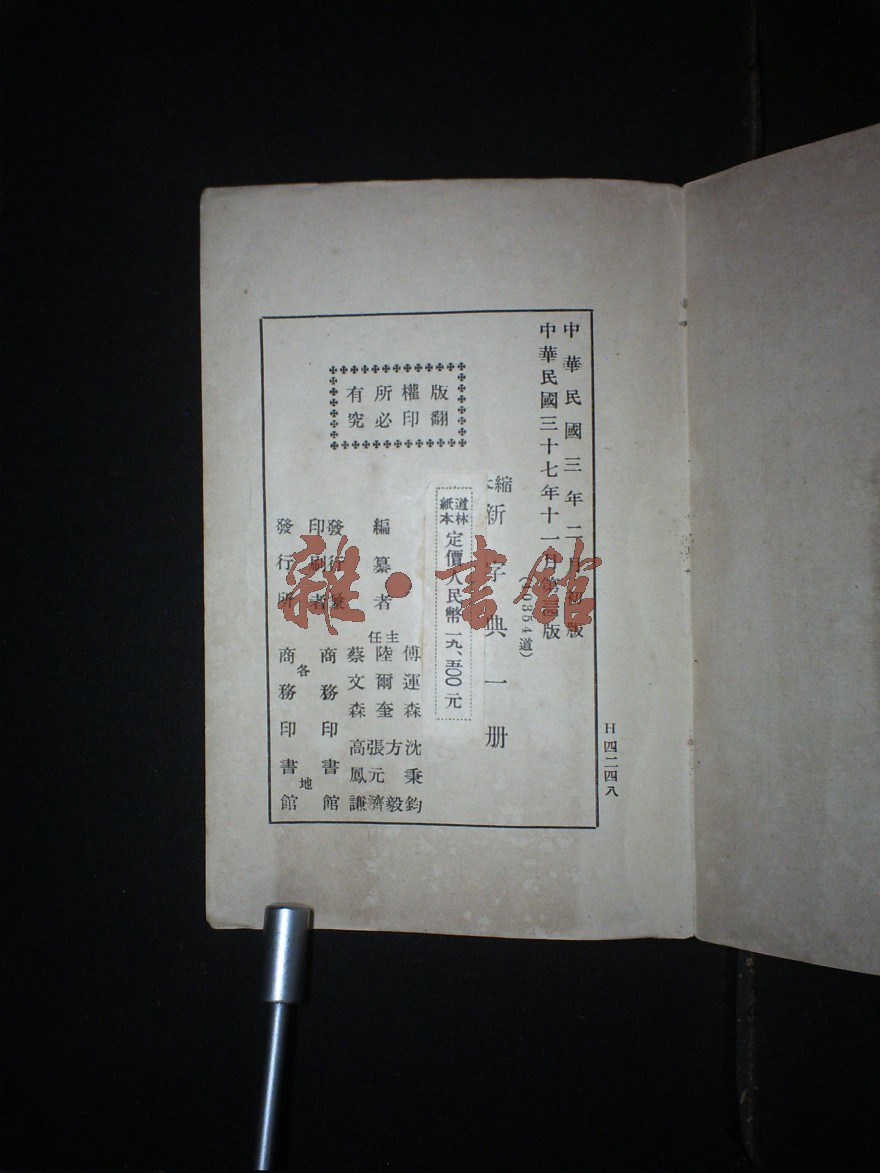 中華民國三年二月初版
中華民國三十七年十一月第三版
(10354道)
縮本
新字典一册
道林紙本
定價人民幣一九、五〇〇元
版權所有
翻印必究
編纂者
主任
傅運森
沈秉鈞
陸爾奎
方毅
蔡文森
張元濟
高鳳謙
發行兼印刷者
商務印書館
發行所
各地
商務印書館
H四二四八
雜·書館